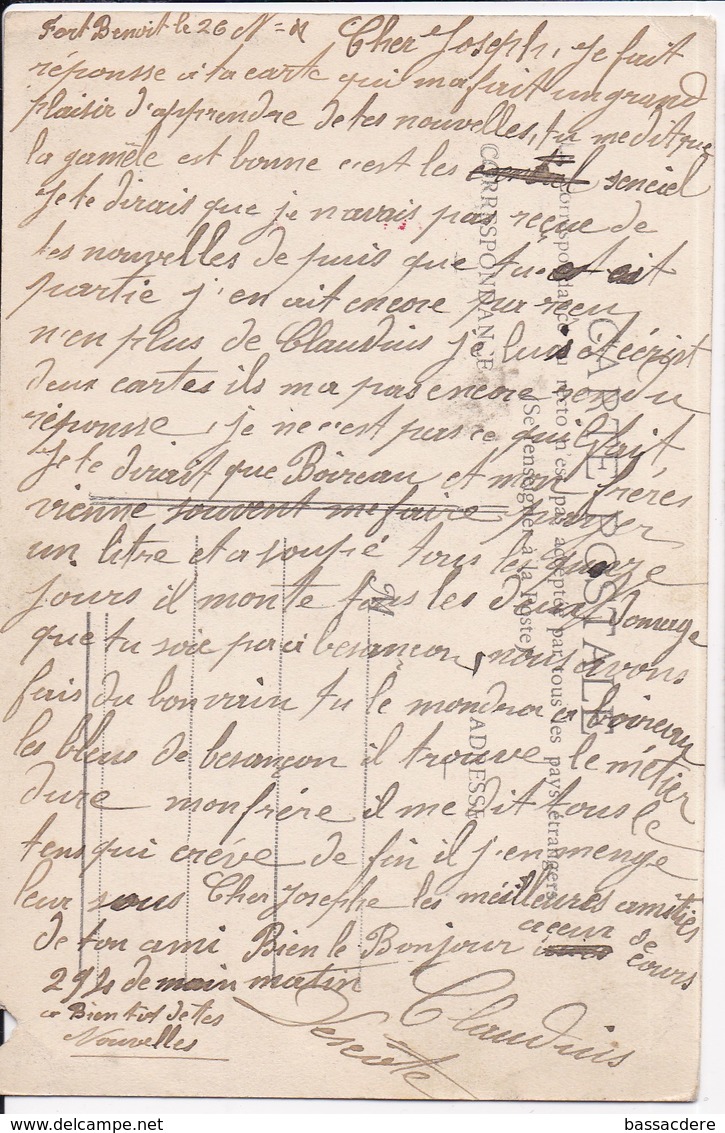 Fort Benoit le 26 N= Cher Joseph, Je fait
réponsse a ta carte qui ma fait un grand
plaisir d'apprendre de tes nouvelles, tu me dit que
la gamèle est bonne c'est les senciel
Je te dirais que je n'avais pas reçue de
tes nouvelles de puis que tu est
partie j'en ait encore pas reçu
n'en plus de Claudius je lui et écript
deux cartes ils ma pas encore rendu
réponsse, je ne c'est pas ce qu'il fait,
Je te dirait que Boireau et mon frères
vienne souvent me faire payer
un litre et a soupé tous les quinze
jours il monte tous les deux Domage
que tu soie pas a besançon, nous avons
fais du bon vain tu le mondra a boireau
les bleus de besançon il trouve le métier
dure mon frére il me dit tous le
tens qui créve de fin il j'en menge
leur sous Cher Josephe les meilleures amitiés
de ton ami Bien le Bonjour a ceux de cours
292 demain matin
a Bientot de tes
Nouvelles
Claudius
CARTE POSTALE
La correspondance au recto n'est pas acceptée par tous les pays étrangers
(Se renseigner à la Poste)
CORRESPONDANCE
ADRESSE
M
bassacdere